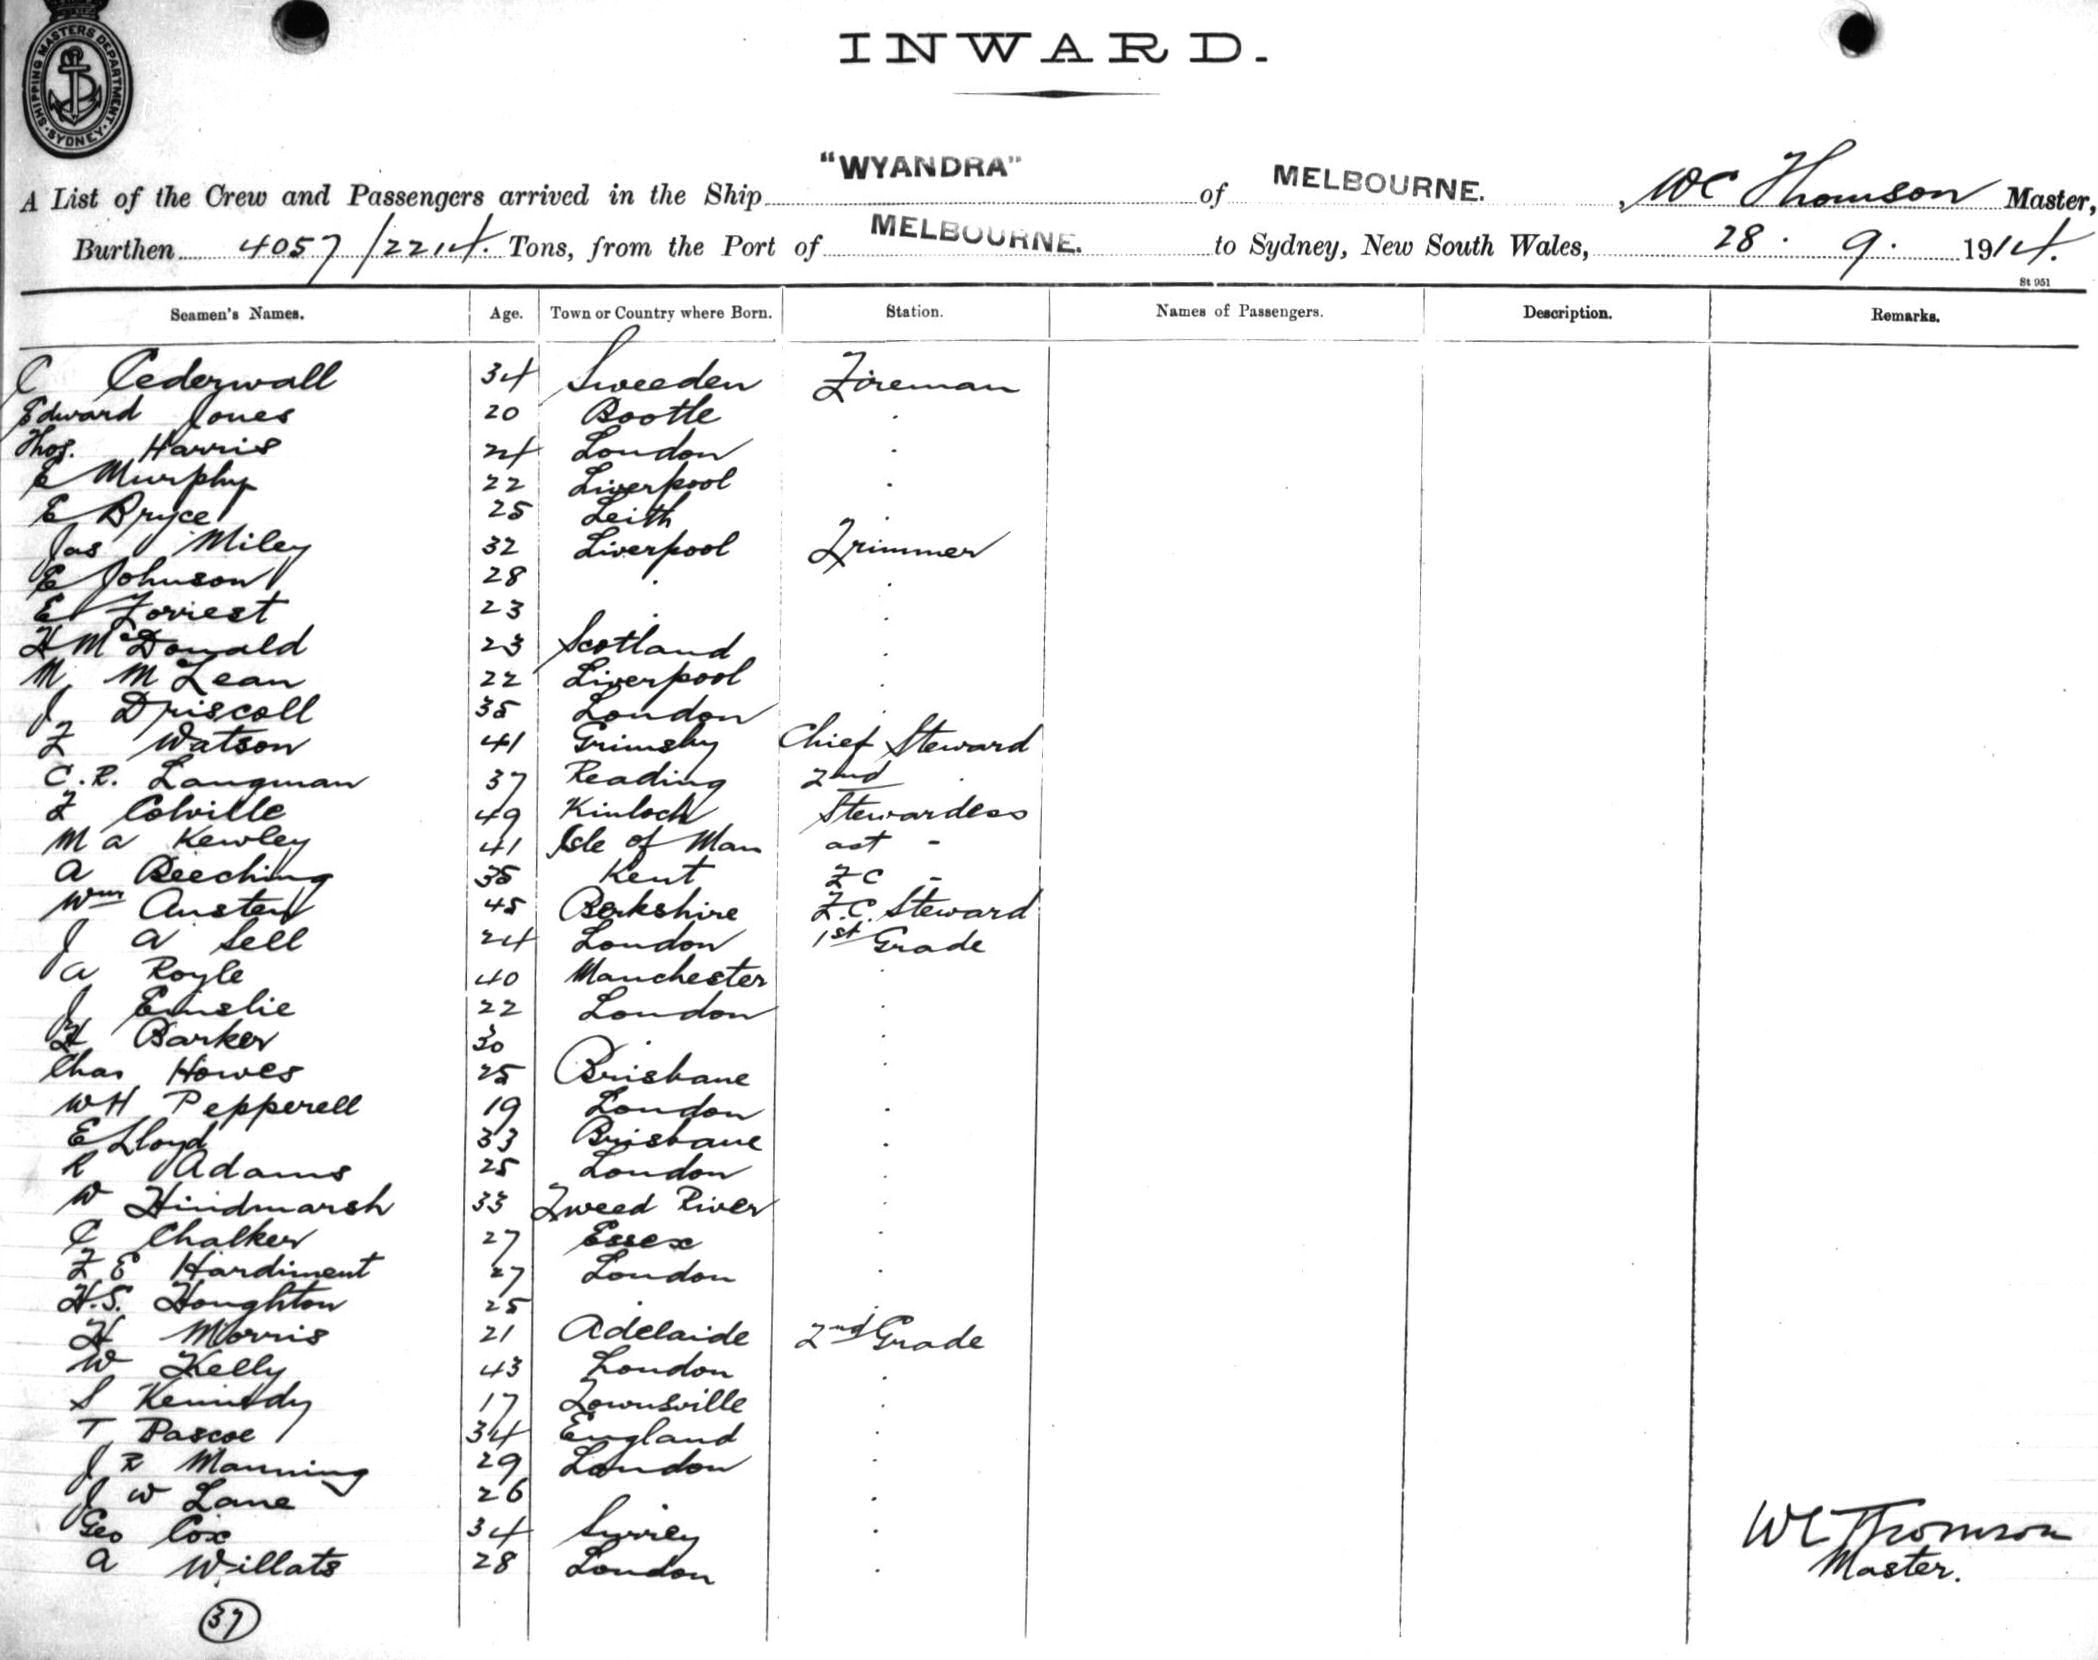 SHIPPING MASTERS DEPARTMENT. SYDNEY.
INWARD.
A List of the Crew and Passengers arrived in the Ship "WYANDRA" of MELBOURNE. , WC Thomson Master,
Burthen 4057/2214. Tons, from the Port of MELBOURNE. to Sydney, New South Wales, 28. 9. 1914.
St 951
Seamen's Names. Age. Town or Country where Born. Station. Names of Passengers. Description. Remarks.
C Cederwall 34 Sweeden Fireman
Edward Jones 20 Bootle .
Thos. Harris 24 London .
E Murphy 22 Liverpool .
E Bryce 25 Leith .
Jas Miley 32 Liverpool Trimmer
E Johnson 28 . .
E Forrest 23 . .
H McDonald 23 Scotland .
M McLean 22 Liverpool .
J Driscoll 35 London .
F Watson 41 Grimsby Chief Steward
C.R. Langman 37 Reading 2nd .
F Colville 49 Kinloch Stewardess
M a Kewley 41 Isle of Man ast -
A Beeching 35 Kent F C -
Wm Austen 45 Berkshire F.C. Steward
J A Sell 24 London 1st Grade
A Royle 40 Manchester .
J Emslie 22 London .
H Barker 30 . .
Chas Howes 25 Brisbane .
WH Pepperell 19 London .
E Lloyd 33 Brisbane .
R Adams 25 London .
W Hindmarsh 33 Tweed River .
C Chalker 27 Essex .
F E Hardiment 27 London .
H.S. Houghton 25 . .
H Morris 21 Adelaide 2nd Grade
W Kelly 43 London .
S Kennedy 17 Townsville .
T Pascoe 34 England .
J R Manning 29 London .
J W Lane 26 . .
Geo Cox 34 Surrey .
A Willats 28 London .
WC Thomson
Master.
37